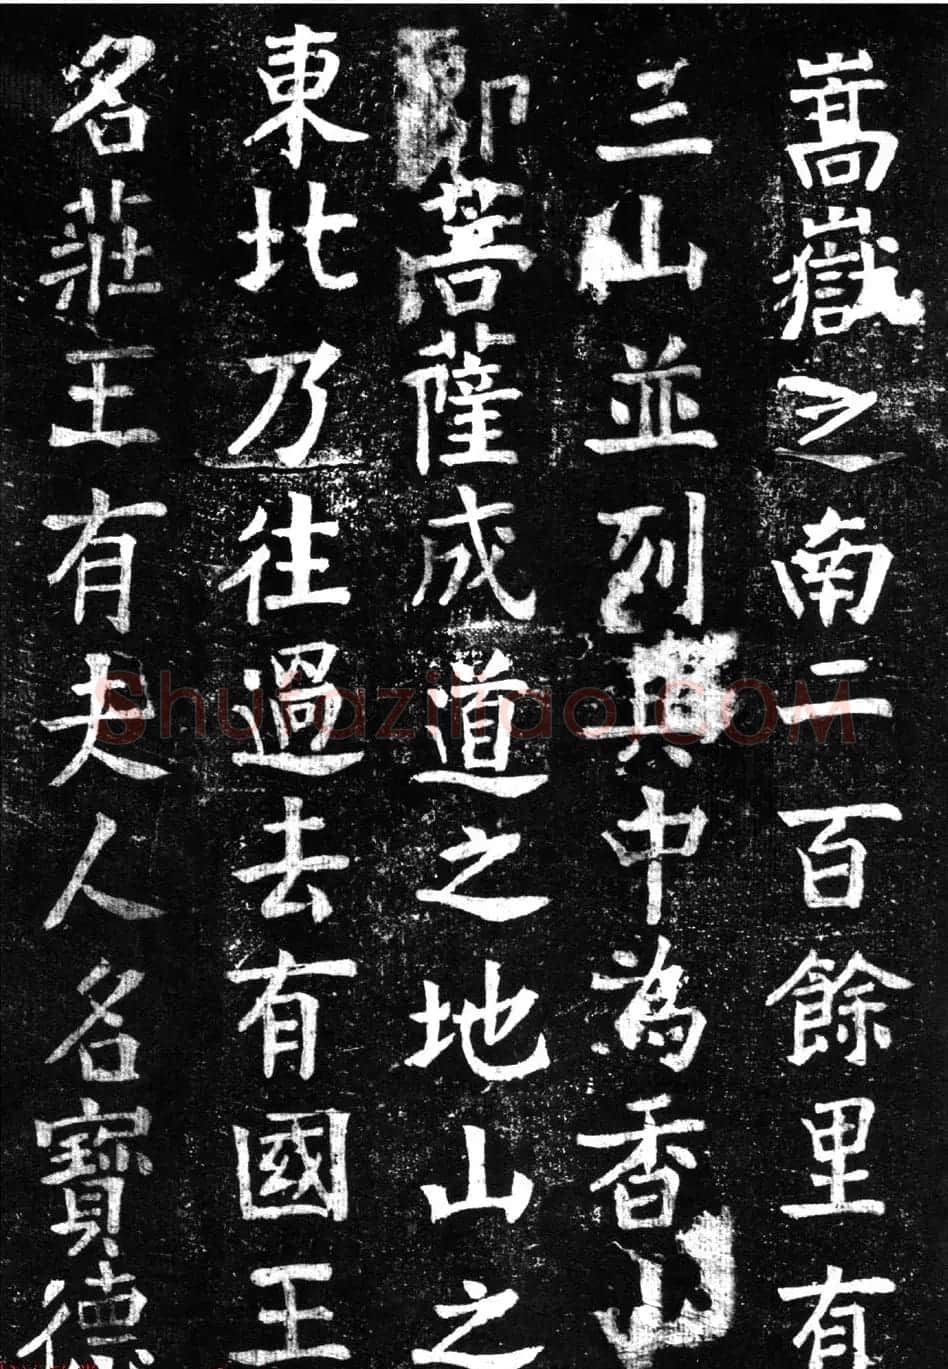 嵩嶽之南二百餘里有
三山並列其中為香山
即菩薩成道之地山之
東北乃往過去有國王
名莊王有夫人名寶德
Shufaziliao.COM